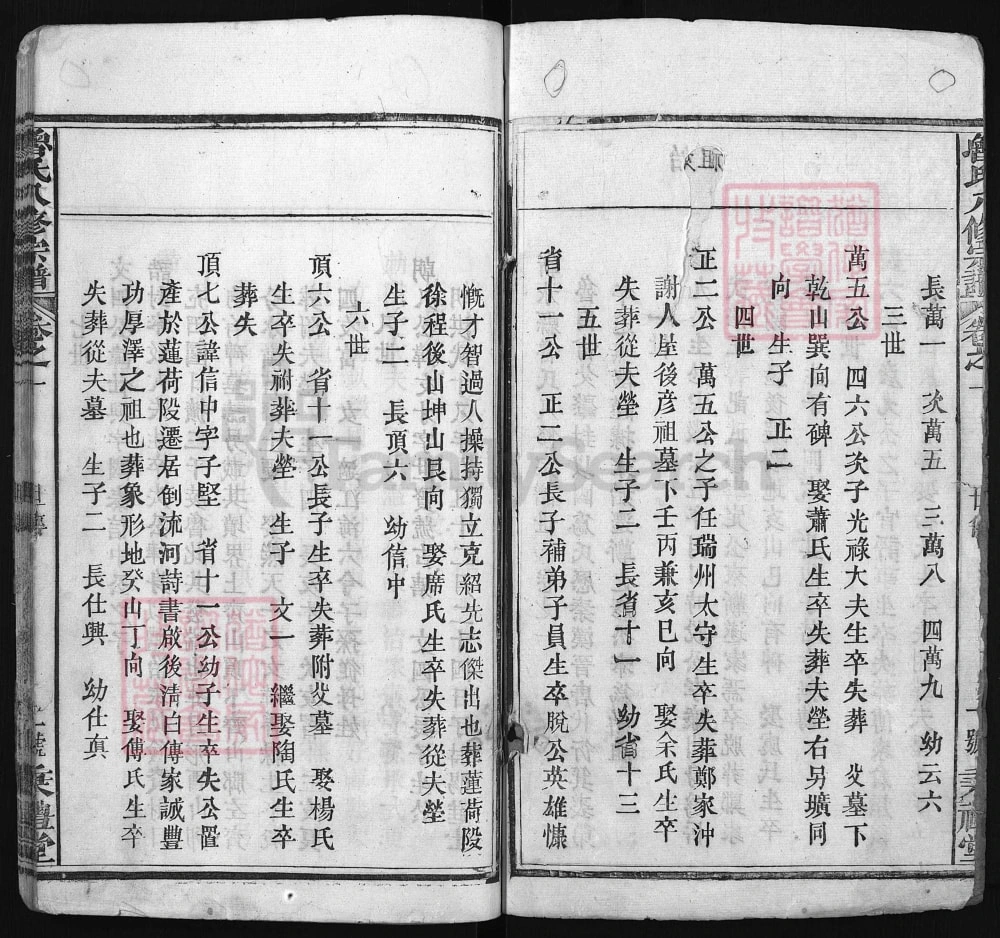 魯氏八修宗譜 卷之一
長萬一 次萬五 三萬八 四萬九 幼云六
三世
萬五公 四六公次子光祿大夫生卒失葬 父墓下
乾山巽向有碑 娶蕭氏生卒失葬夫塋右另壙同
向 生子 正二
四世
正二公 萬五公之子任瑞州太守生卒失葬鄭家沖
謝人屋後彥祖墓下壬丙兼亥巳向 娶余氏生卒
失葬從夫塋 生子二 長省十一 幼省十三
五世
省十一公 正二公長子補弟子員生卒脫公英雄慷
慨才智過人操持獨立克紹先志傑出也葬蓮荷段
徐程後山坤山艮向 娶席氏生卒失葬從夫塋
生子二 長頂六 幼信中
六世
頂六公 省十一公長子生卒失葬附父墓 娶楊氏
生卒失祔葬夫塋 生子 文一 繼娶陶氏生卒
葬失
頂七公諱信中字子堅 省十一公幼子生卒失公置
產於蓮荷段遷居創流河詩書啟後清白傳家誠豐
功厚澤之祖也葬象形地癸山丁向 娶傅氏生卒
失葬從夫墓 生子二 長仕興 幼仕真
魯氏八修宗譜 卷之一